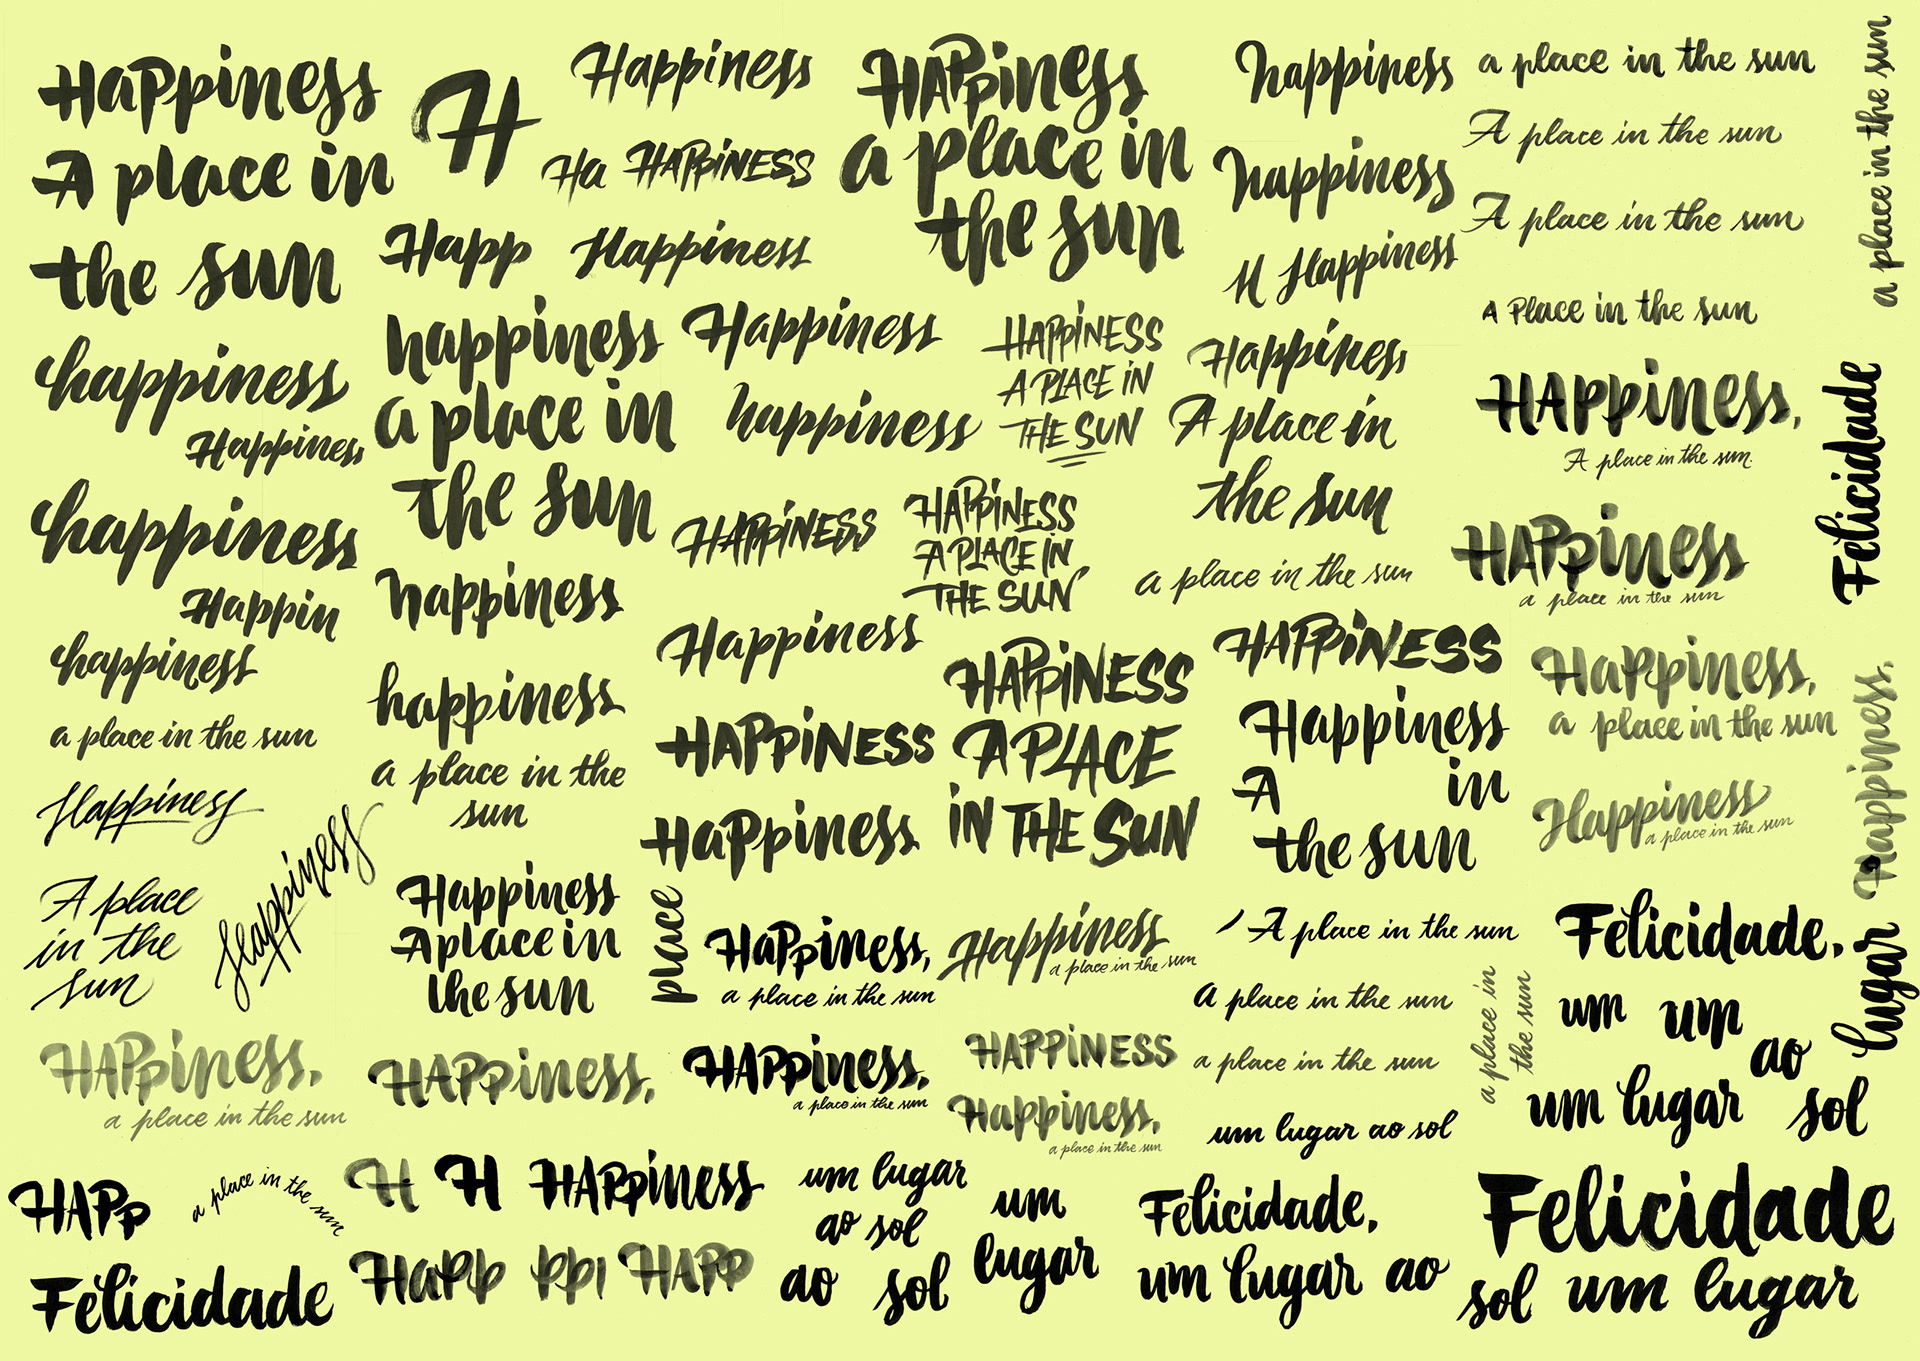 Happiness
A place in
the sun
H
Happiness
Ha HAPPiNESS
Happ Happiness
HAPPiness
a place in
the sun
happiness
happiness
H Happiness
a place in the sun
A place in the sun
A place in the sun
A Place in the sun
a place in the sun
happiness
Happiness
happiness
Happin
happiness
a place in the sun
Happiness
Happiness
A place
in the
sun
happiness
a place in
the sun
happiness
happiness
a place in the
sun
Happiness
A place in
the sun
Happiness
happiness
HAPPiNESS
A PLACE iN
THE SUN
HAPPiNESS
HAPPiNESS
A PLACE IN
THE SUN
Happiness
A place in
the sun
a place in the sun
HAPPiness,
A place in the sun
Felicidade
HAPPiness
a place in the sun
Happiness
HAPPiNESS
HaPPiness
place
HAPPiNESS
A PLACE
iN THE SUN
HAPPiNESS
Happiness
A in
the sun
HaPPiness,
a place in the sun
Happiness
a place in the sun
Happiness,
HaPPiness,
a place in the sun
Happiness
a place in the sun
A place in the sun
a place in the sun
a place in the sun
um lugar ao sol
a place in
the sun
Felicidade,
um um
ao
um lugar sol
lugar
HAPPiness,
a place in the sun
HAPPiness,
HAPPiness,
a place in the sun
HAPPiNESS
Happiness,
a place in the sun
HAPp
a place in the sun
Felicidade
H H HAPPiness
HaPP ppi HAPP
um lugar
ao sol
um
lugar
ao sol
Felicidade,
um lugar ao
Felicidade
sol um lugar